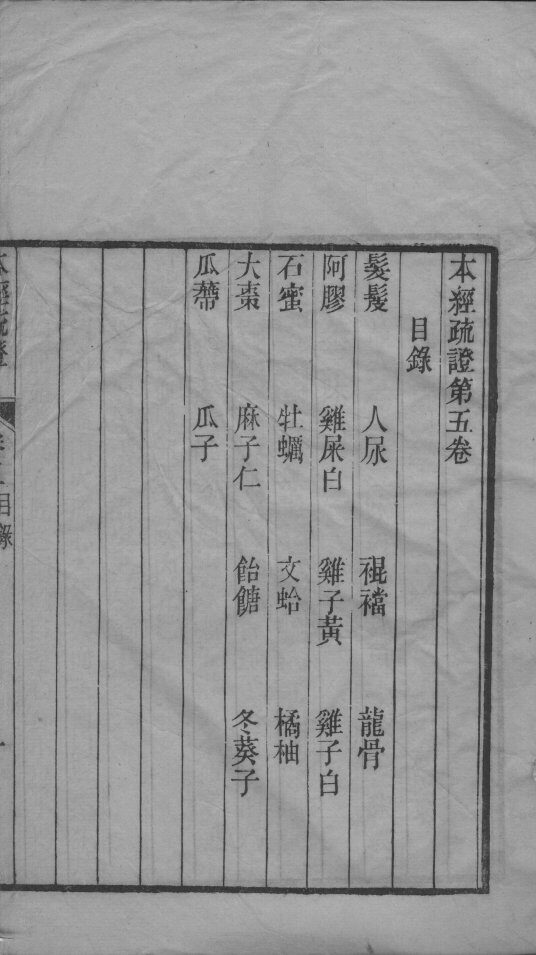 本經疏證第五卷
目錄
髮髲 人尿 裩襠 龍骨
阿膠 雞屎白 雞子黃 雞子白
石蜜 牡蠣 文蛤 橘柚
大棗 麻子仁 飴餹 冬葵子
瓜蔕 瓜子
本經疏證 目錄 一